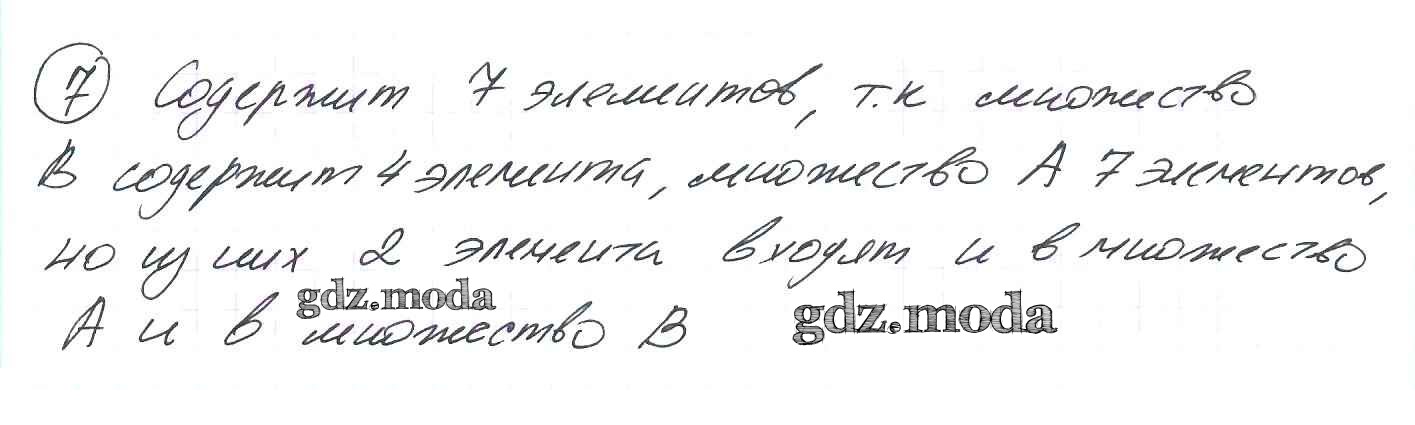 7 Содержит 7 элементов, т.к множество
В содержит 4 элемента, множество А 7 элементов,
но из них 2 элемента входят и в множество
gdz.moda gdz.moda
А и в множество В